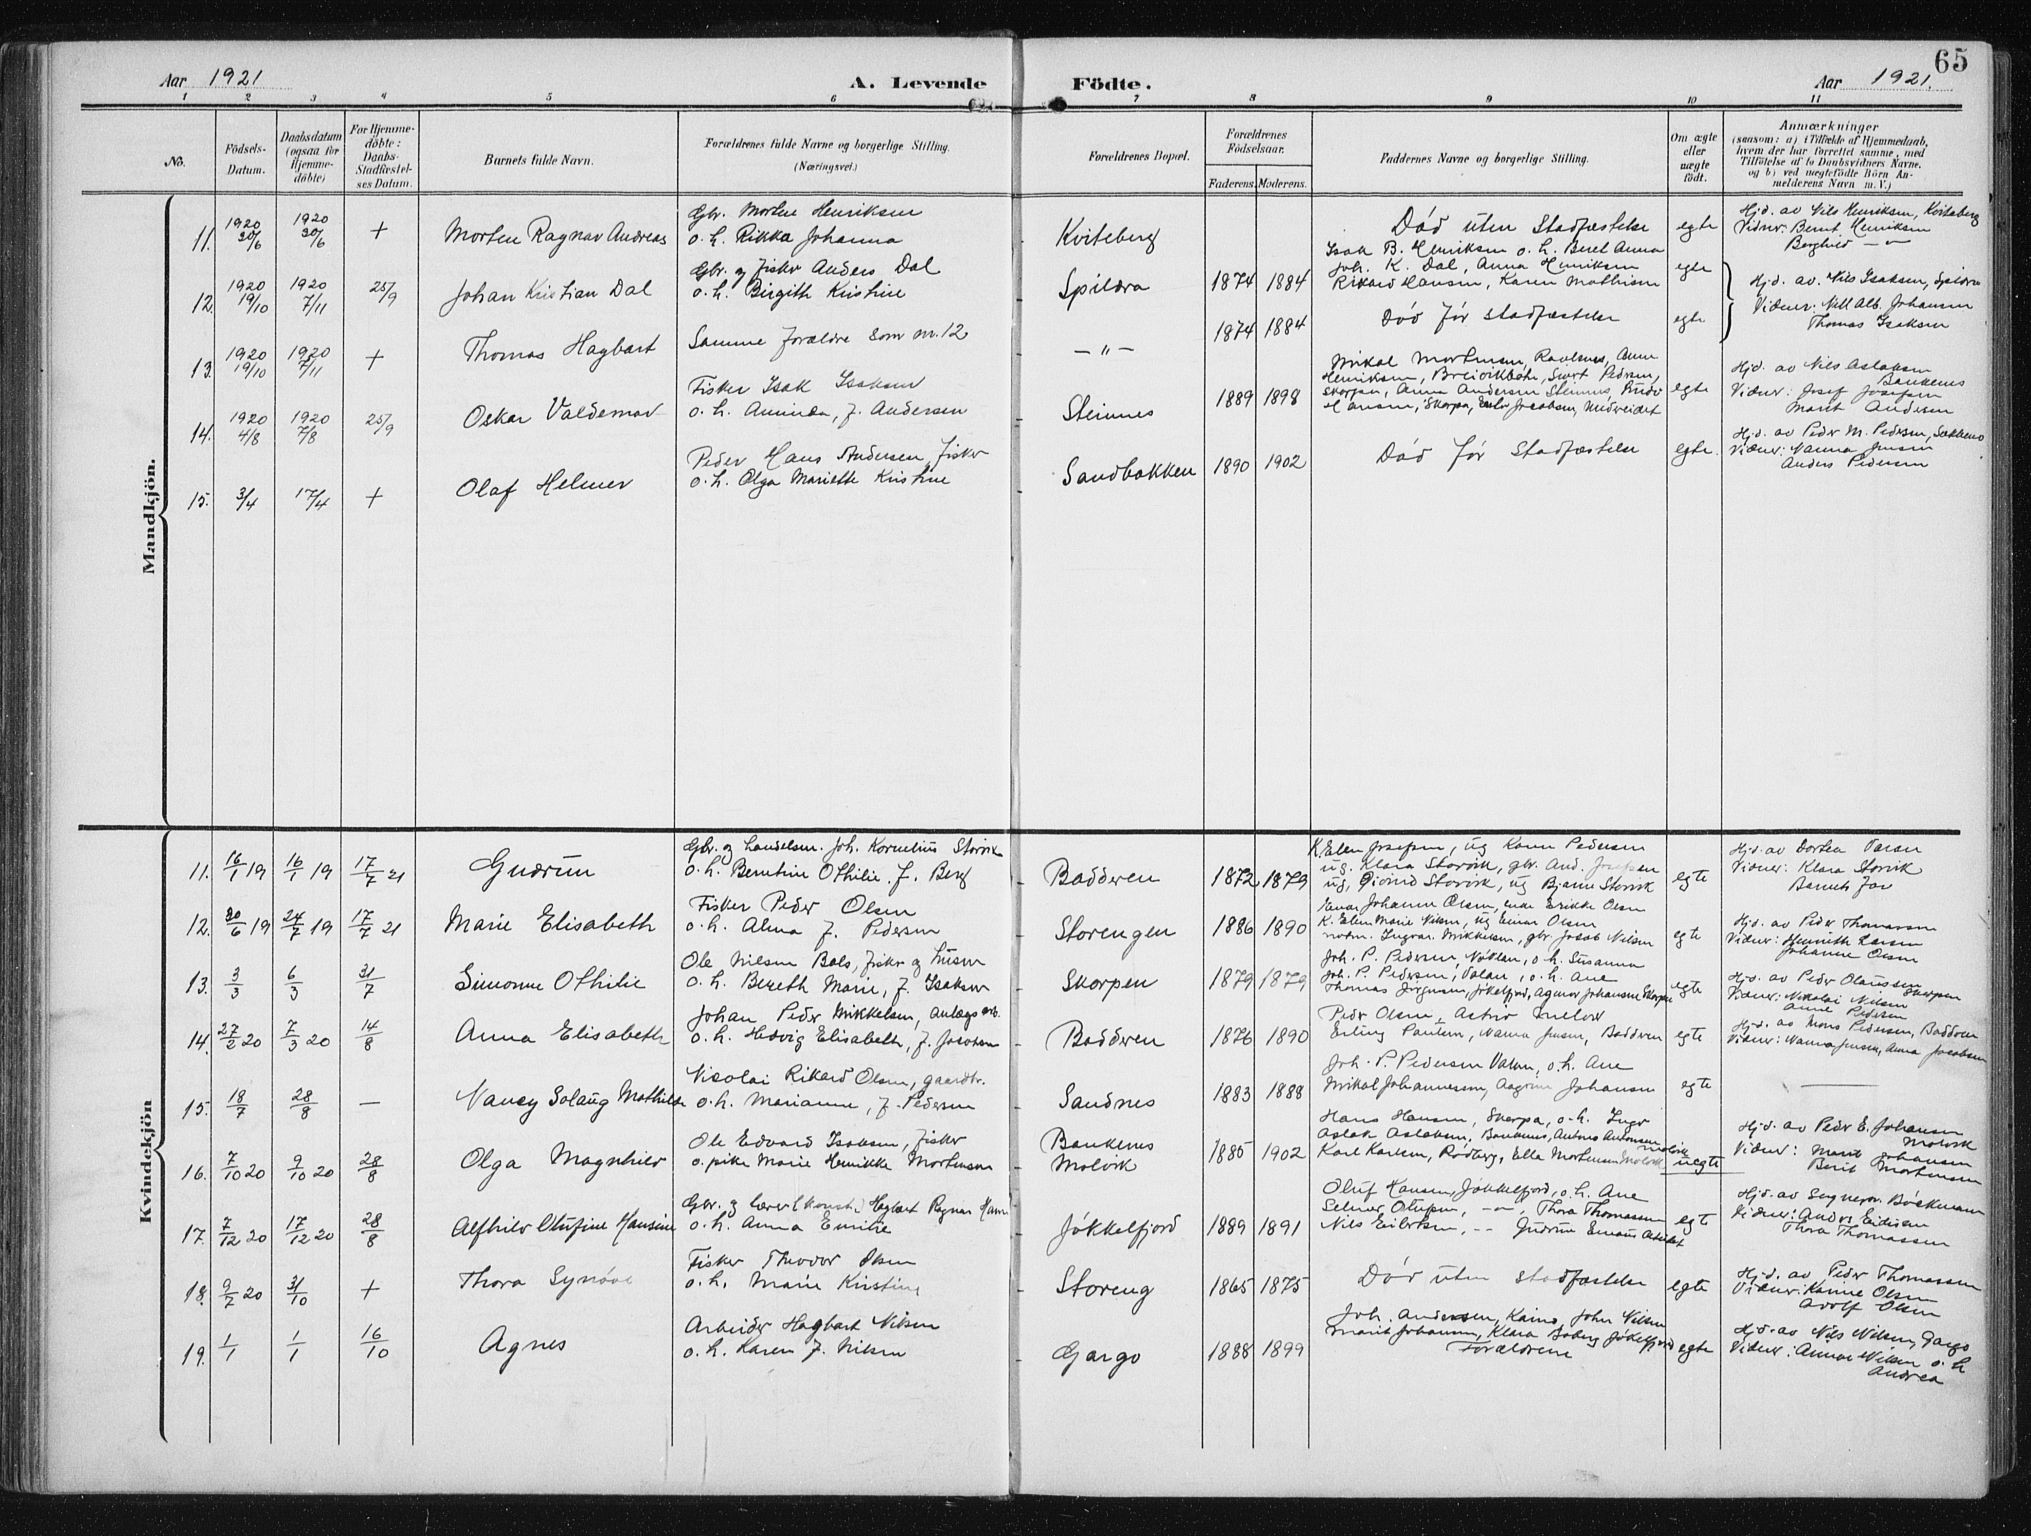 65
Aar 1921
A. Levende
Födte.
Aar 1921.
1 2 3 4 5 6 7 8 9 10 11
No.
Födsels-
Datum.
Daabsdatum
(ogsaa for
Hjemme-
döbte)
For Hjemme-
döbte:
Daabs-
Stadfæstel-
ses Datum.
Barnets fulde Navn.
Forældrenes fulde Navne og borgerlige Stilling.
(Næringsvei.)
Forældrenes Bopæl.
Forældrenes
Födselsaar.
Faderens. Moderens.
Faddernes Navne og borgerlige Stilling.
Om ægte
eller
uægte
födt.
Anmærkninger
(saasom: a) i Tilfælde af Hjemmedaab,
hvem der har forrettet samme, med
Tilföielse af to Daabsvidners Navne.
og b) ved uægtefödte Börn An-
melderens Navn m. V.)
Mandkjön.
11. 1920 30/6 1920 30/6 + Morten Ragnar Andreas
Gbr. Morten Henriksen
o. h. Rikka Johanna
Kviteberg
Död uten Stadfæstelse
egte
Hj.d. av Nils Henriksen, Kviteberg
Vidner: Bernt Henriksen
Borghild — " —
12. 1920 19/10 1920 7/11 25/9 Johan Kristian Dal
Gbr. og fisker Anders Dal
o. h. Birgith Kristine
Spildra 1874 1884
Isak B. Henriksen o. h. Beret Anna
Joh. K. Dal, Anna Henriksen
Rikard Hansen, Karen Mathisen
egte
Hj.d. av Nils Isaksen, Spildra
Vidner: Nill Alb. Johansen
Thomas Isaksen
13. 1920 19/10 1920 7/11 + Thomas Hagbart
Samme forældre som nr. 12
— " — 1874 1884
Död för stadfæstelse
egte
14. 1920 4/8 1920 7/8 25/9 Oskar Valdemar
Fisker Isak Isaksen
o. h. Aminda, f. Andersen
Steinnes 1889 1898
Mikal Mortensen, Anne
Henriksen, Sivert Pedersen,
Skorpen, Anna Andersen Steinnes,
Hansen, Skorpa, Jacobsen,
egte
Hj.d. av Nils Aslaksen
Baukenes
Vidner: Josef Josefsen
Marit Andersen
15. 3/4 17/4 + Olaf Helmer
Peder Hans Andersen, fisker
o. h. Olga Mariette Kristine
Sandbakken 1890 1902
Död för Stadfæstelse
egte.
Hj.d. av Peder M. Pedersen,
Vidner: Nanna Jensen
Anders Pedersen
Kvindekjön
11. 16/1 19 16/1 19 17/7 21 Gudrun
Gbr. og handelsm. Joh. Kornelius Storvik
o. h. Berntine Othilie f. Berg
Badderen 1872 1879
K. Elen Josefsen, ug Karen Pedersen
ug. Klara Storvik, gbr. And. Josefsen
ug, Øivind Storvik, ug Bjarne Storvik
egte
Hj.d. av Dortea
Vidner: Klara Storvik
Barnets far
12. 30/6 19 24/7 19 17/7 21 Marie Elisabeth
Fisker Peder Olsen
o. h. Alma f. Pedersen
Storengen 1886 1890
Johanne Olsen, enke Erikke Olsen
K. Elen Marie Nilsen, ug Einar Olsen
Ingvar Mikkelsen, gbr. Jacob Nilsen
egte
Hj.d. av Peder Thomassen
Vidner: Henriette Larsen
Johanne Olsen
13. 3/3 6/3 31/7 Simonne Othilie
Ole Nilsen Bals, fisker og
o. h. Bereth Marie, f. Isaksen
Skorpen 1879 1879
Joh. P. Pedersen, o. h. Susanna
Joh. P. Pedersen, Valan, o. h. Ane
Thomas Jörgensen, Jökelfjord, Agnar Johansen Skorpen
egte
Hj.d. av Peder Olaussen
Skorpen
Vidner: Nikolai Nilsen
Anne Pedersen
14. 27/2 20 7/3 20 14/8 Anna Elisabeth
Johan Peder Mikkelsen, anlægsarb.
o. h. Hedvig Elisabeth, f. Jacobsen
Badderen 1876 1890
Peder Olsen, Astrid
Erling Paulsen, Nanna Jensen, Badderen
egte
Hj.d. av Mons Pedersen, Badderen
Vidner: Nanna Jensen, Anna Jacobsen
15. 18/7 28/8 — Nancy Solaug Mathilde
Nicolai Rikard Olsen, gaardbr.
o. h. Marianne, f. Pedersen
Sandnes 1883 1888
Joh. P. Pedersen Valan, o. h. Ane
Mikal Johannessen, Johansen
egte
———
16. 7/10 20 9/10 20 28/8 Olga Magnhild
Ole Edvard Isaksen, fisker
o. pike Marie Henrikke Mortensen
Baukenes
Molvik
1885 1902
Hans Hansen, Skorpa, o. h. Inger
Aslak Aslaksen, Baukenes, Antonsen
Karl Karlsen, Rödberg, Ella Mortensen Molvik
uegte
Hj.d. av Peder E. Johansen
Molvik
Vidner: Marit Johansen
Berit Mortensen
17. 7/12 20 17/12 20 28/8 Alfhild Olufine Hansine
Gbr. og lærer (konst.) Hagbart Ragnar Hansen
o. h. Anna Emilie
Jökkelfjord 1889 1891
Oluf Hansen, Jökkelfjord, o. h. Ane
Selmer Olufsen, — " —, Thora Thomassen
Nils Eilertsen, - - Gudrun
egte
Hj.d. av Sognepr. Böckmann
Vidner: Anders Eidissen
Thora Thomassen
18. 9/7 20 31/10 + Thora Synöve
Fisker Theodor Olsen
o. h. Marie Kristine
Storeng 1865 1875
Död uten stadfæstelse
egte
Hj.d. av Peder Thomassen
Vidner: Hanne Olsen
Adolf Olsen
19. 1/1 1/1 16/10 Agnes
Arbeider Hagbart Nilsen
o. h. Karen f. Nilsen
Gargo 1888 1899
Joh. Andersen, John Nilsen
Marit Johansen, Klara Soberg Jökelfjord
Forældrene
egte
Hj.d. av Nils Nilsen, Gargo
Vidner: Annar Nilsen o. h
Andrea